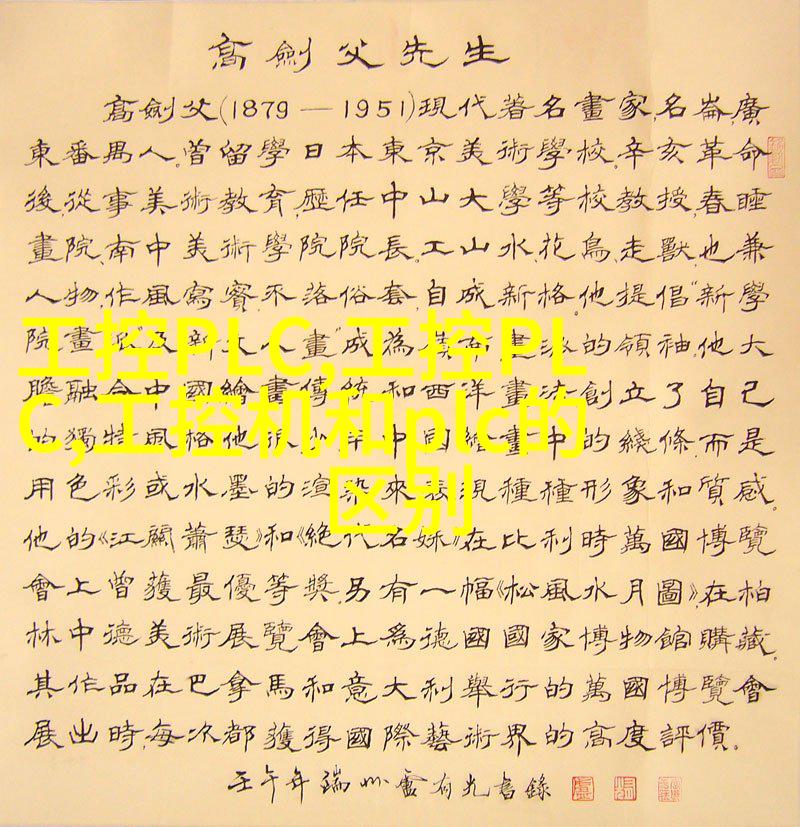 高劍父先生
高劍父(1879—1951)現代著名畫家,名崙,廣
東番禺人。曾留學日本東京美術學校,辛亥革命
後,從事美術教育,歷任中山大學等校教授,春睡
畫院,南中美術學院院長。工山水,花鳥,走獸,也兼
人物,作風寫實,不落俗套,自成新格。他提倡“新學
院畫
及“新文人畫”成為
的領袖。他大
膽融合中國繪畫傳統和西洋畫法,創立了自己
的獨特風格,他很少
中國繪畫中的綫條,而是
用色彩或水墨的渲染來表現種種形象和質感。
他的《江關蕭瑟》和《絕代名姝》在比利時萬國博覽
會上曾獲最優等獎,另有一幅《松風水月圖》,在柏
林中德美術展覽會上爲德國國家博物館購藏。
其作品在巴拿馬和意大利舉行的萬國博覽會
展出時,每次都獲得國際藝術界的高度評價。
壬午年端州盧有光書錄
工控PLC,工控PL
C,工控机和plc的
区别